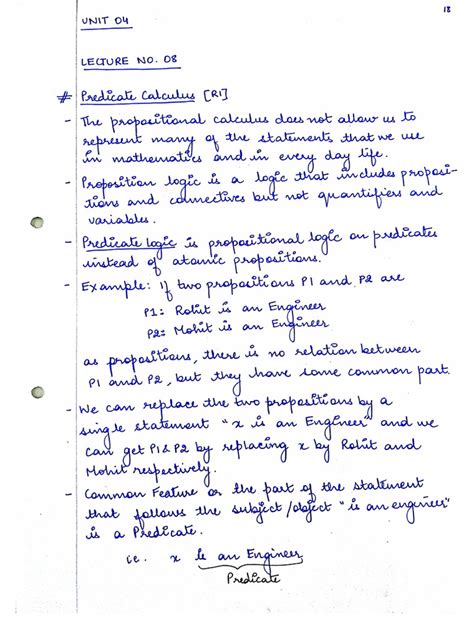 18
UNIT 04
LECTURE NO. 08
# Predicate Calculus [R1]
- The propositional calculus does not allow us to
represent many of the statements that we use
in mathematics and in every day life.
- Proposition logic is a logic that includes proposi-
tions and connectives but not quantifiers and
variables.
- Predicate logic is propositional logic on predicates
instead of atomic propositions.
- Example: If two propositions P1 and P2 are
P1: Rohit is an Engineer
P2: Mohit is an Engineer
as propositions, there is no relation between
P1 and P2, but they have some common part.
- We can replace the two propositions by a
single statement "x is an Engineer" and we
can get P1 & P2 by replacing x by Rohit and
Mohit respectively.
- Common Feature or the part of the statement
that follows the subject/object "is an engineer"
is a Predicate.
i.e. x is an Engineer
Predicate